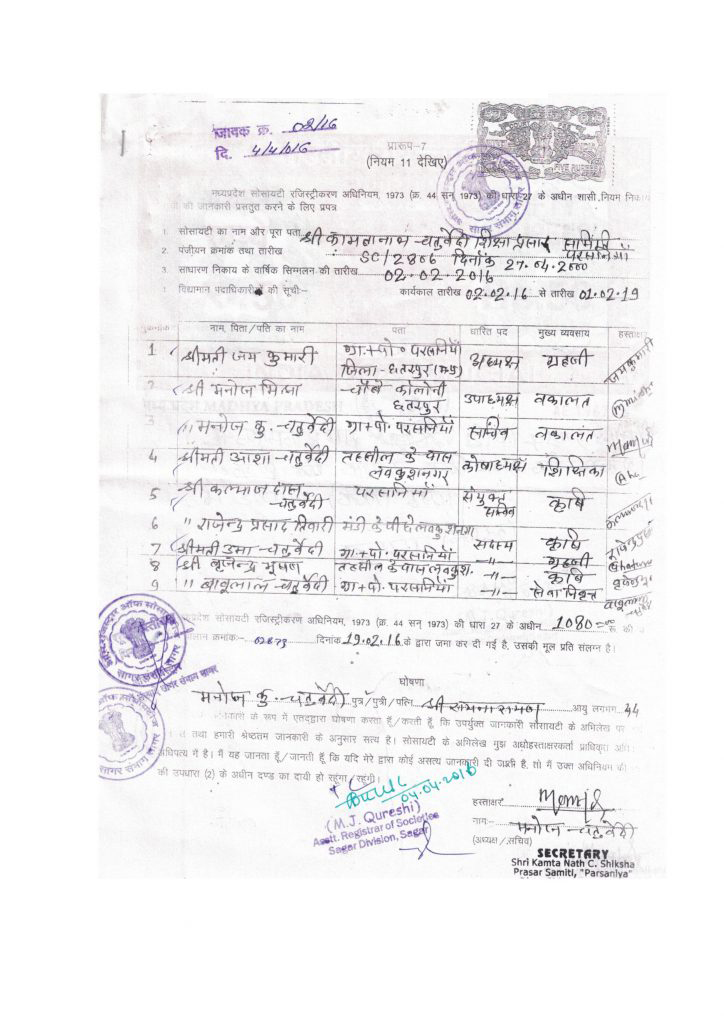 जावक क्र. 02/16
दि. 4/4/016
प्रारूप-7
(नियम 11 देखिए)
मध्यप्रदेश सोसायटी रजिस्ट्रीकरण अधिनियम, 1973 (क्र. 44 सन् 1973) की धारा 27 के अधीन शासी नियम
की जानकारी प्रस्तुत करने के लिए प्रपत्र
1. सोसायटी का नाम और पूरा पता श्री कामतानाथ चतुर्वेदी शिक्षा प्रसार समिति परसनियाँ
2. पंजीयन क्रमांक तथा तारीख SC/2806 दिनांक 27.04.2000
3. साधारण निकाय के वार्षिक सिम्मलन की तारीख 02.02.2016
विद्यामान पदाधिकारीयों की सूची:- कार्यकाल तारीख 02.02.16 से तारीख 01.02.19
नाम, पिता/पति का नाम पता धारित पद मुख्य व्यवसाय हस्ताक्षर
1 श्रीमती जय कुमारी ग्रा.+पो. परसनियाँ जिला-छतरपुर (म.प्र) अध्यक्ष ग्रहणी जयकुमारी
2 श्री मनोज मिश्रा चौबे कालोनी छतरपुर उपाध्यक्ष वकालत
3 " मनोज कु. चतुर्वेदी ग्रा+पो. परसनियाँ सचिव वकालत
4 श्रीमती आशा चतुर्वेदी तहसील के पास लवकुशनगर कोषाध्यक्ष शिक्षिका
5 श्री कल्याण दास चतुर्वेदी परसनियाँ संयुक्त सचिव कृषि
6 " राजेन्द्र प्रसाद तिवारी मंडी के पीछे लवकुशनगर
7 श्रीमती उमा चतुर्वेदी ग्रा+पो. परसनियाँ सदस्य कृषि
8 श्री बृजेन्द्र भूषण तहसील के पास लवकुश. -"- ग्रहणी
9 " बाबूलाल चतुर्वेदी ग्रा+पो. परसनियाँ -"- कृषि
-"- सेवा निवृत्त
सोसायटी रजिस्ट्रीकरण अधिनियम, 1973 (क्र. 44 सन् 1973) की धारा 27 के अधीन 1080=00 रू
क्रमांक:- 02873 दिनांक 19.02.16 के द्वारा जमा कर दी गई है, उसकी मूल प्रति संलग्न है।
घोषणा
मनोज कु. चतुर्वेदी पुत्र/पुत्री/पत्नि श्री आयु लगभग 44
के रूप में एतद्द्वारा घोषणा करता हूँ/करती हूँ, कि उपर्युक्त जानकारी सोसायटी के अभिलेख पर
तथा हमारी श्रेष्ठतम जानकारी के अनुसार सत्य है। सोसायटी के अभिलेख मुझ अधोहस्ताक्षरकर्ता प्राधिकृत
अधिपत्य में है। मैं यह जानता हूँ/जानती हूँ कि यदि मेरे द्वारा कोई असत्य जानकारी दी जाती है, तो मैं उक्त अधिनियम की
की उपधारा (2) के अधीन दण्ड का दायी हो रहूंगा/रहूंगी।
04.04.2016
(M.J. Qureshi)
Asstt. Registrar of Societies
Sagar Division, Sagar
हस्ताक्षर
नाम:- मनोज चतुर्वेदी
(अध्यक्ष/सचिव)
SECRETARY
Shri Kamta Nath C. Shiksha
Prasar Samiti, "Parsaniya"